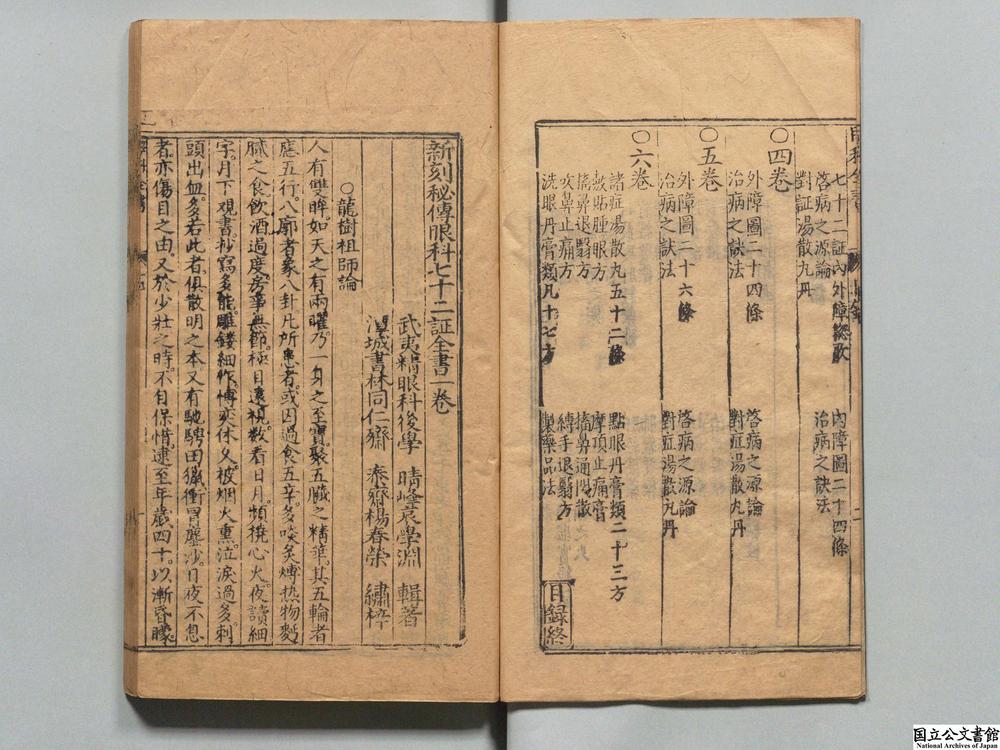 七十二証內外障總歌
內障圖二十四條
啓病之源論
治病之訣法
對証湯散丸丹
〇四卷
外障圖二十四條
啓病之源論
治病之訣法
對症湯散丸丹
〇五卷
外障圖二十六條
啓病之源論
治病之訣法
對症湯散丸丹
〇六卷
諸症湯散丸五十二條
點眼丹膏類二十三方
敷貼腫眼方
摩頂止痛膏
搐鼻退翳方
搐鼻通關散
吹鼻止痛方
縛手退翳方
洗眼丹膏類凡十七方
製藥品法
目錄終
新刻秘傳眼科七十二証全書一卷
武夷精眼科後學 晴峰袁學淵 輯著
潭城書林同仁齋 泰齋楊春榮 繡梓
〇龍樹祖師論
人有雙眸。如天之有兩曜。乃一身之至寶。聚五臟之精華。其五輪者
應五行。八廓者象八卦。凡所患者。或因過食五辛。多啖炙煿热物麪
臟之食。飲酒過度。房事無節。極目遠視。数看日月。頻撓心火。夜讀細
字。月下观書。抄寫多能。雕鏤細作。博奕休久。被烟火熏。泣淚過多。刺
頭出血。多若此者。俱散明之本。又有馳騁田獵。衝冒塵沙。日夜不息
者。亦傷目之由。又於少壯之時。不自保惜。逮至年歲四十。以漸昏矇。